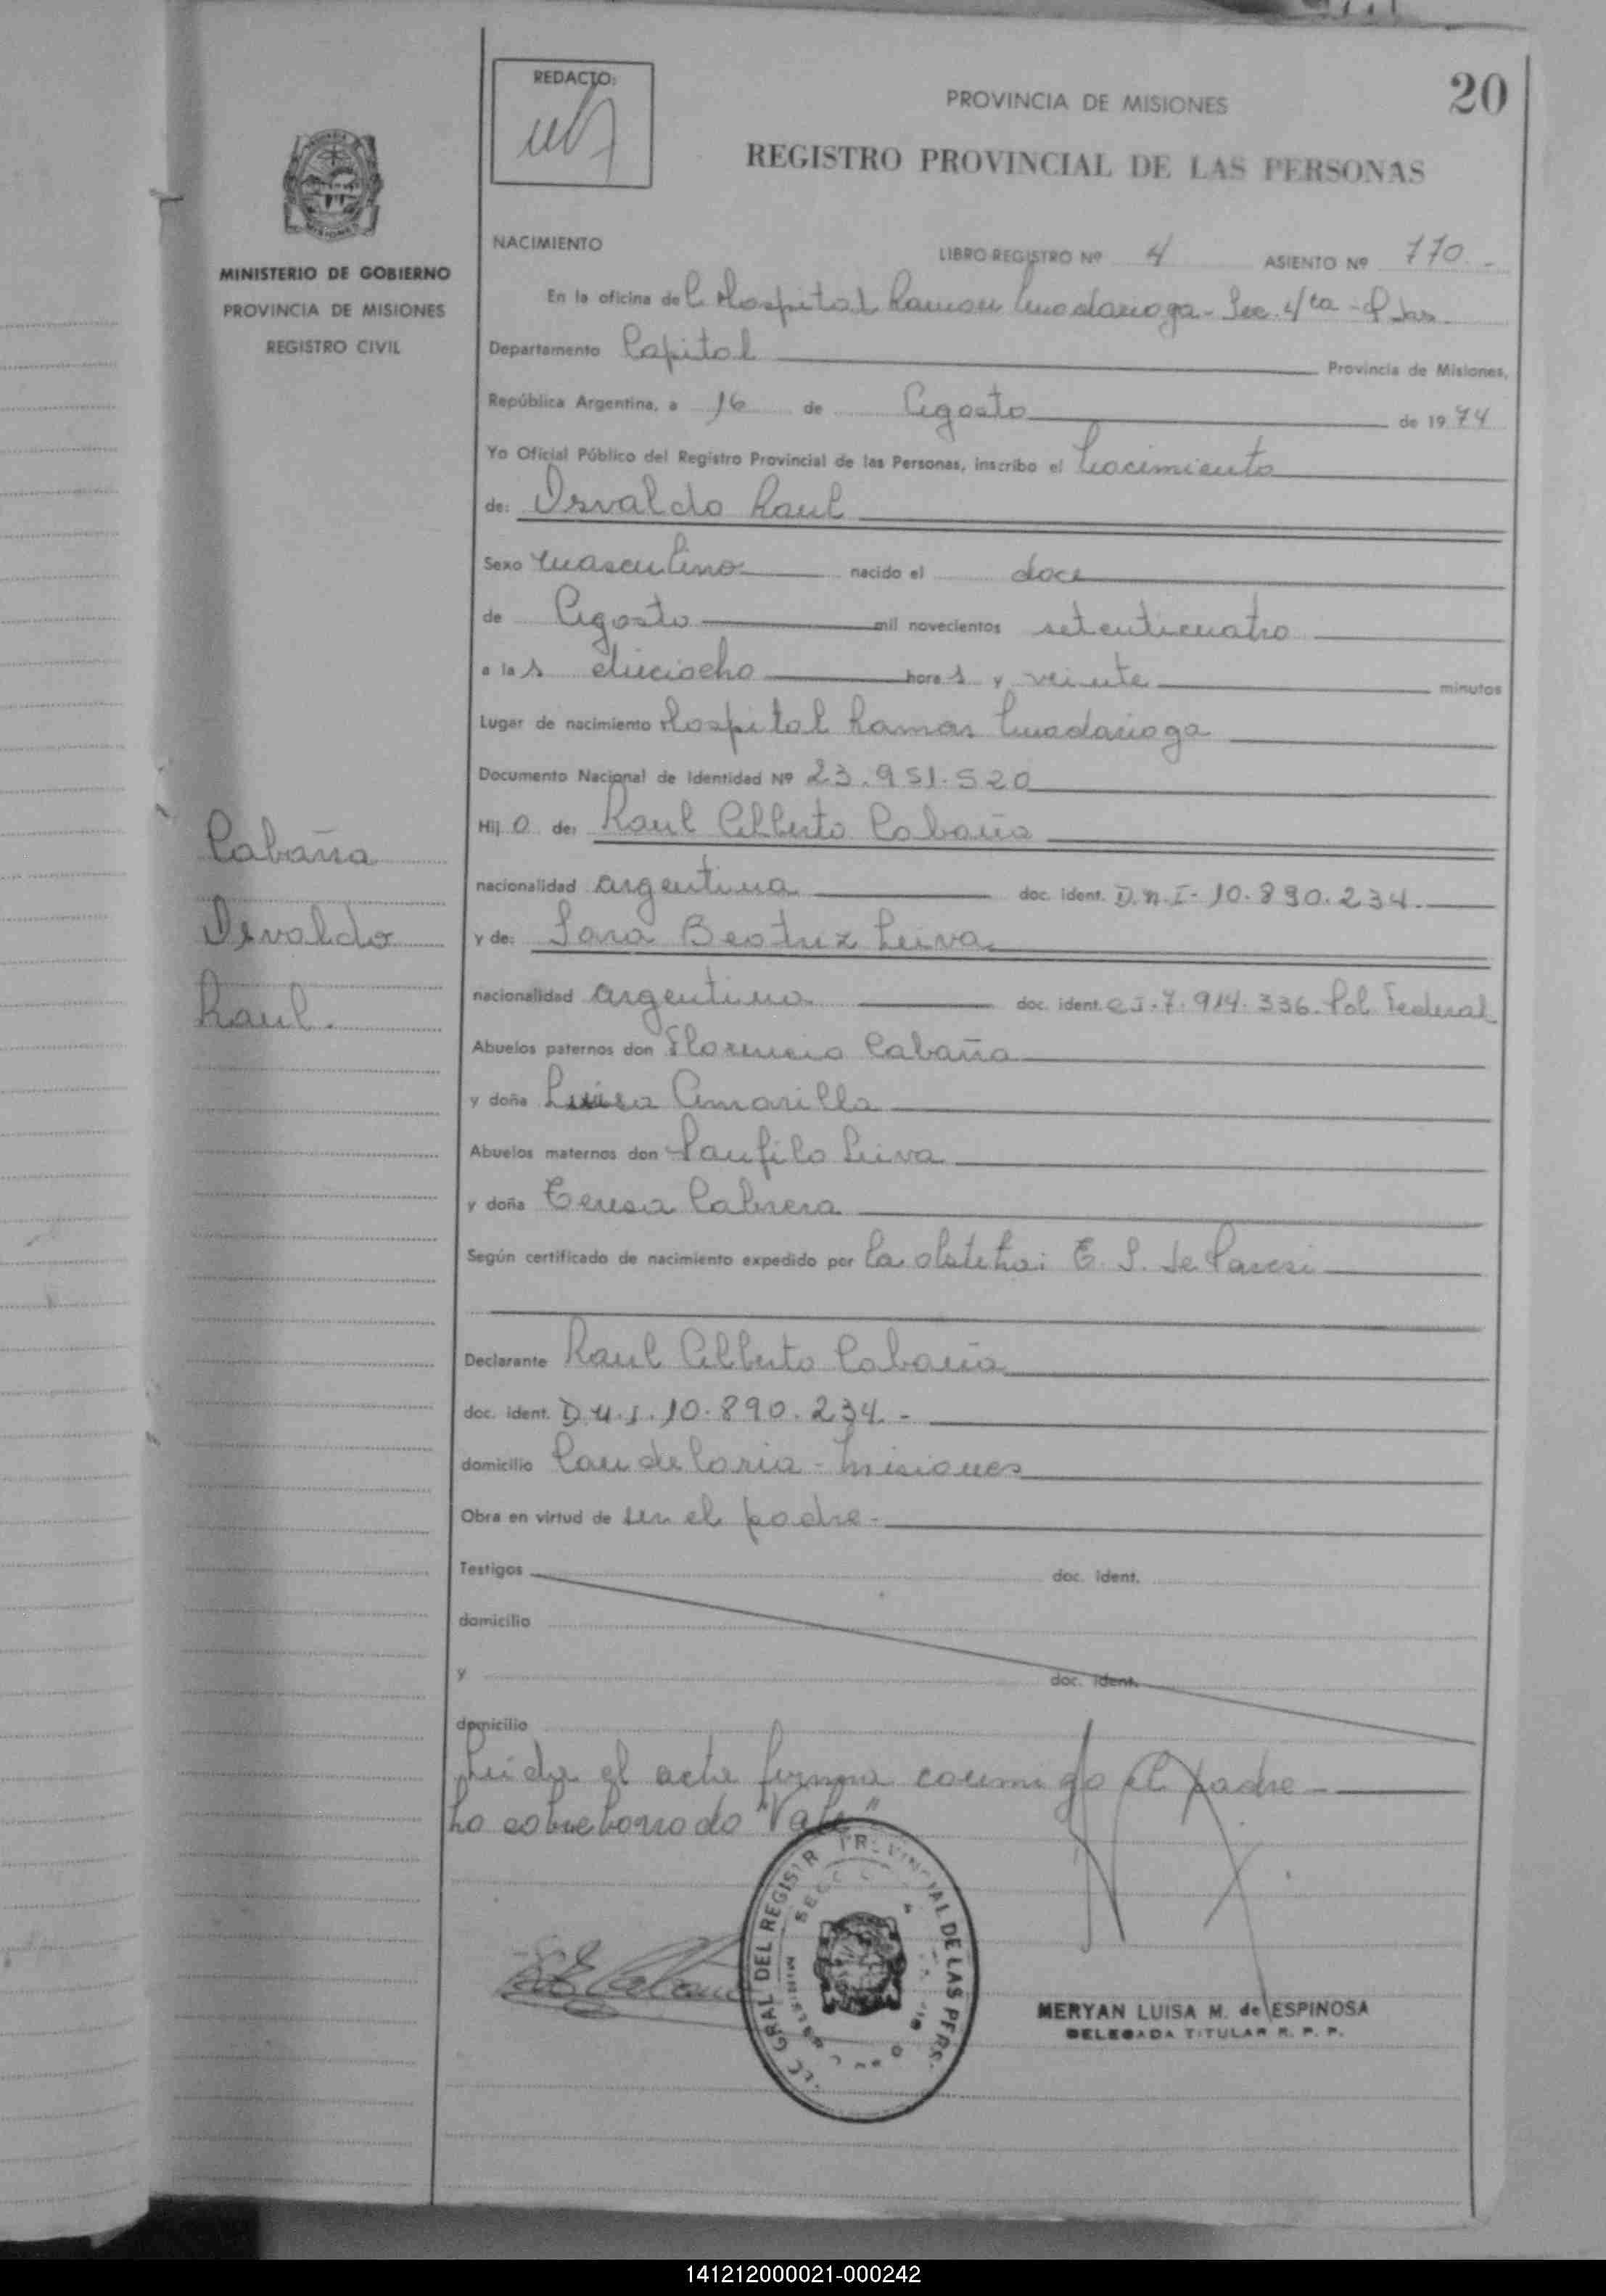 REDACTO:
PROVINCIA DE MISIONES
20
REGISTRO PROVINCIAL DE LAS PERSONAS
MINISTERIO DE GOBIERNO
PROVINCIA DE MISIONES
REGISTRO CIVIL
NACIMIENTO
LIBRO REGISTRO Nº 4 ASIENTO Nº 770.-
En la oficina del Hospital Ramon Madariaga - Sec. 4ta - Pdas
Departamento Capital Provincia de Misiones,
República Argentina, a 16 de Agosto de 1974
Yo Oficial Público del Registro Provincial de las Personas, inscribo el Nacimiento
de: Osvaldo Raul
Sexo masculino nacido el doce
de Agosto mil novecientos setenticuatro
a las dieciocho horas y veinte minutos
Lugar de nacimiento Hospital Ramon Madariaga
Documento Nacional de Identidad Nº 23.951.520
Hijo de: Raul Alberto Cabaña
nacionalidad argentina doc. ident. D.N.I- 10.890.234.
y de: Sara Beatriz Leiva
nacionalidad argentina doc. ident. C.I-7.914.336. Pol. Federal
Cabaña
Osvaldo
Raul.
Abuelos paternos don Florencio Cabaña
y doña Luisa Amarilla
Abuelos maternos don Panfilo Leiva
y doña Teresa Cabrera
Según certificado de nacimiento expedido por la obstetra: E. S. de
Declarante Raul Alberto Cabaña
doc. ident. D.N.I. 10.890.234.-
domicilio Candelaria - Misiones
Obra en virtud de ser el padre.
Testigos doc. ident.
domicilio
y doc. ident.
domicilio
Leida el acta firma conmigo el padre
Lo sobreborrado "Vale"
GRAL DEL REGISTR PROVINCIAL DE LAS PERS.
MERYAN LUISA M. de ESPINOSA
DELEGADA TITULAR R. P. P.
141212000021-000242